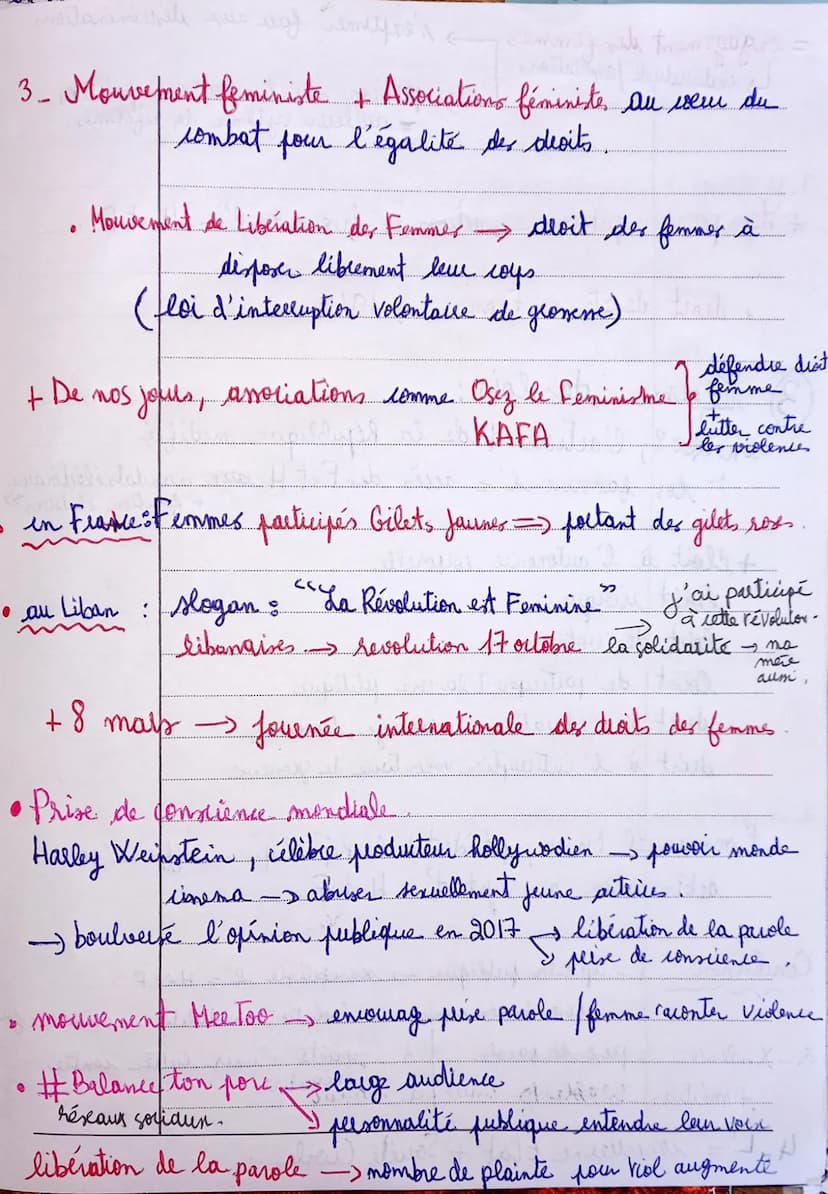 3_ Mouvement feministe + Associations féministes au cœur du
combat pour l'égalité des droits.
• Mouvement de Libération des Femmes → droit des femmes à
disposer librement leur corps
(loi d'interruption volontaire de grossesse)
+ De nos jours, associations comme Osez le Feminisme
KAFA
défendre droit
femme
+
lutter contre
les violences
• en France : Femmes participés Gilets Jaunes => portant des gilets roses.
• au Liban : slogan : "La Révolution est Feminine"
libanaises → revolution 17 octobre la solidarité
j'ai participé
à cette révolution.
→ ma
mère
aussi.
+ 8 mars → Journée internationale des droits des femmes.
• Prise de conscience mondiale.
Harley Weinstein, célèbre producteur hollywodien → pouvoir monde
cinema → abuser sexuellement jeune actrices.
→ boulversé l'opinion publique en 2017 → libération de la parole
↘ prise de conscience.
• mouvement MeeToo → encourage prise parole / femme raconter violence
• #Balance ton porc → large audience
réseaux
↘ personnalité publique entendre leur voix
libération de la parole → nombre de plainte pour viol augmenté